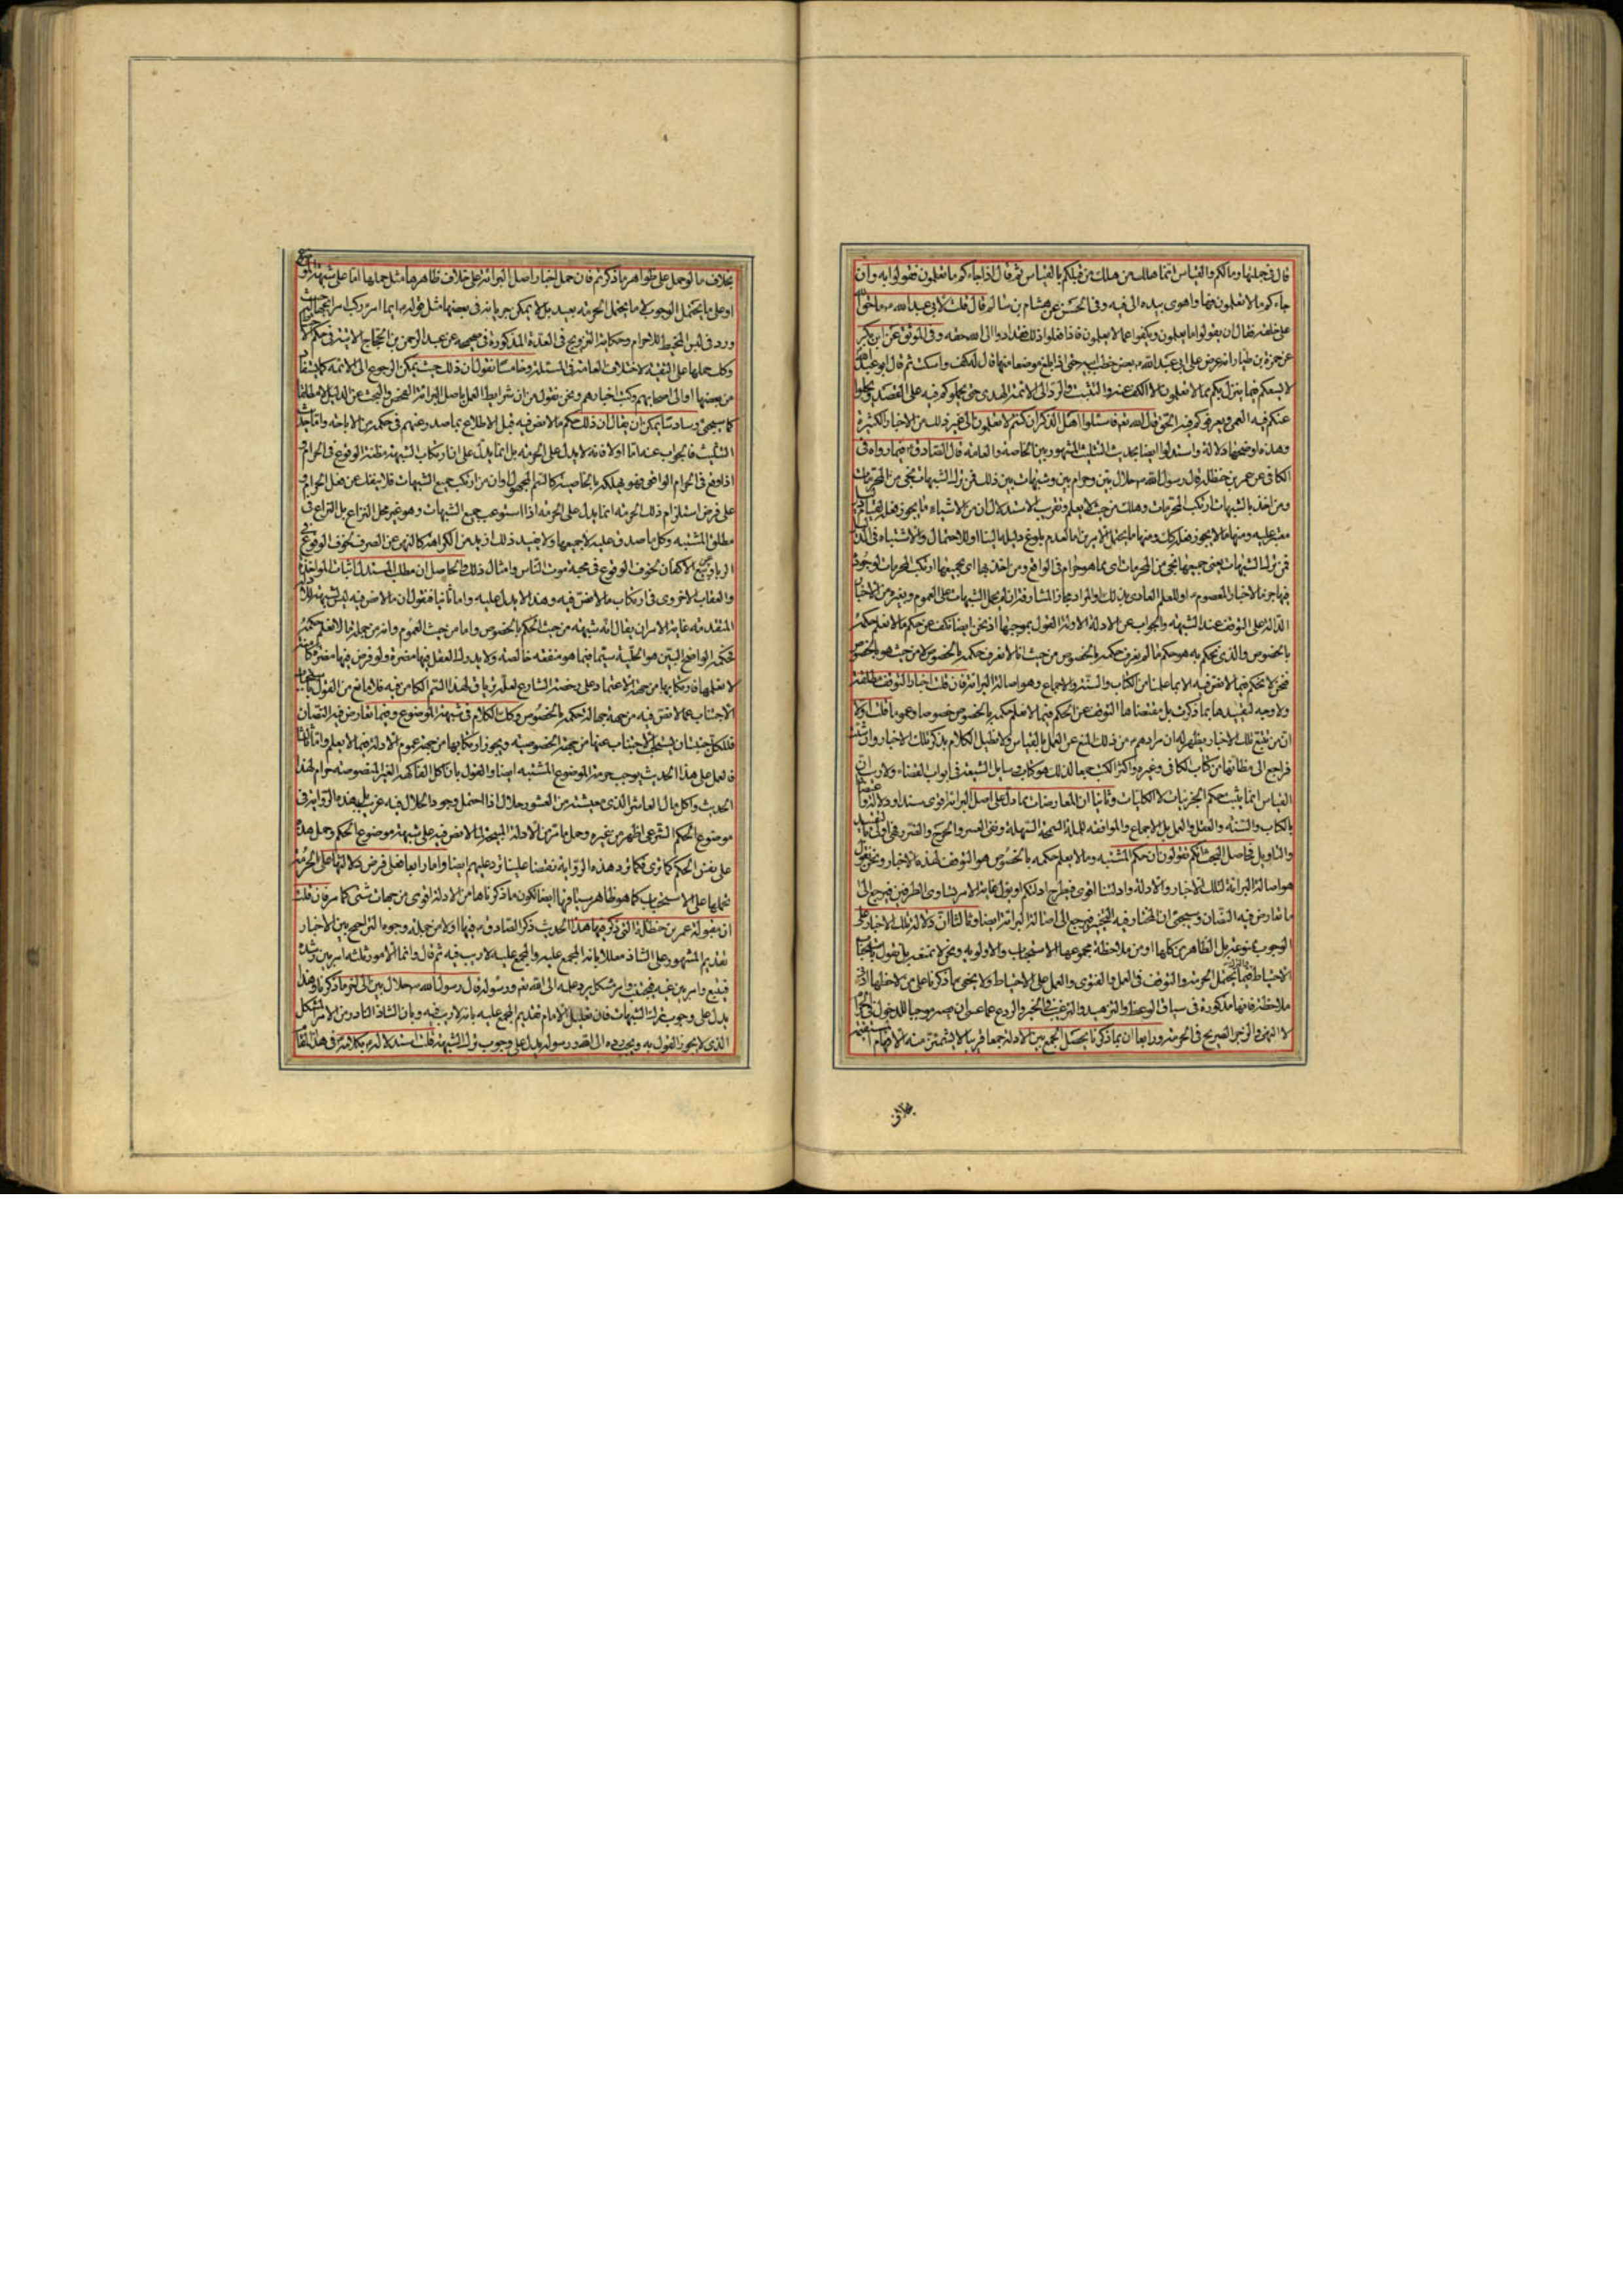 قال فى جملتها ومالكم والقياس انما هلك من هلك من قبلكم بالقياس ثم قال اذا جاءكم ما تعلمون فقولوا به وان
جاءكم ما لا تعلمون فها واهوى بيده الى فيه وفى الحسن عن هشام بن سالم قال قلت لابى عبد الله ما حق الله
على خلقه فقال ان يقولوا ما يعلمون ويكفوا عما لا يعلمون فاذا فعلوا ذلك فقد ادوا الى الله حقه وفى الموثق عن ابن بكير
عن حمزة بن طيار انه عرض على ابى عبد الله بعض خطب ابيه حتى اذا بلغ موضعا منها قال له كف واسكت ثم قال ابو عبد الله
لا يسعكم فيما ينزل بكم مما لا تعلمون الا الكف عنه والتثبت والرد الى ائمة الهدى حتى يحملوكم فيه على القصد ويجلوا
عنكم فيه العمى ويعرفوكم فيه الحق قال الله تعالى فاسئلوا اهل الذكر ان كنتم لا تعلمون الى غير ذلك من الاخبار الكثيرة
وهذه اوضحها دلالة واستدلوا ايضا بحديث التثليث المشهور بين الخاصة والعامة قال الصادق فيما رواه فى
الكافى عن عمر بن حنظلة قال رسول الله حلال بين وحرام بين وشبهات بين ذلك فمن ترك الشبهات نجى من المحرمات
ومن اخذ بالشبهات ارتكب المحرمات وهلك من حيث لا يعلم وتقريب الاستدلال ان من الاشياء ما يجوز فعله
فمن ترك الشبهات يعنى جميعها نجى من المحرمات اى مما هو حرام فى الواقع ومن اخذ بها اى بجميعها ارتكب المحرمات
الدالة على التوقف عند الشبهة والجواب عن الادلة الاولة القول بموجبها اذ نحن ايضا نكف عن حكم ما لا نعلم حكمه
بالخصوص والذى نحكم به هو حكم ما لم يعرف حكمه بالخصوص من حيث انا لا نعرف حكمه بالخصوص لا من حيث هو بالخصوص
فنحن لا نحكم فيما لا نص فيه الا بما علمنا من الكتاب والسنة والاجماع وهو اصالة البرائة فان قلت اخبار التوقف مطلقة
ولا وجه لتقييدها بما ذكرت بل مقتضاها التوقف عن الحكم فيما لا نعلم حكمه بالخصوص خصوصا وعموما قلت اولا
ان من تتبع تلك الاخبار يظهر له ان مرادهم من ذلك المنع عن العمل بالقياس ولا نطيل الكلام بذكر تلك الاخبار وان شئت
فراجع الى مظانها من كتاب الكافى وغيره واكثر الكتب جمعا لذلك هو كتاب وسايل الشيعة فى ابواب القضاء ولا ريب ان
القياس انما يثبت حكم الجزئيات لا الكليات وثانيا ان المعارضات مما دل على اصل البرائة اقوى سندا ودلالة
بالكتاب والسنة والعقل والعمل بل الاجماع والموافقة للملة السمحة السهلة ونفى العسر والحرج والضرر فهى اولى
هو اصالة البرائة لتلك الاخبار والادلة وادلتنا اقوى فيطرح ادلتكم او يؤل غاية الامر تساوى الطرفين فيرجع الى
ما تعارض فيه النصان وسيجئ ان المختار فيه التخيير فيرجع الى اصالة البرائة ايضا وثالثا ان دلالة تلك الاخبار على
الوجوب ممنوعة بل الظاهر من كلها او من ملاحظة مجموعها الاستحباب والاولوية ونحن لا نمنعه بل نقول باستحباب
الاحتياط فيما يحتمل الحرمة والتوقف فى العمل والفتوى والعمل على الاحتياط ولا يخفى ما ذكرنا على من لاحظها
لا النهى والزجر الصريح فى الحرمة ورابعا ان بما ذكرنا يحصل الجمع بين الادلة جمعا قريبا لا يشمئز منه الافهام
بخلاف
بخلاف ما لو حمل على ظواهر ما ذكرتم فان حمل اخبار اصل البرائة على خلاف ظاهرها مثل حملها اما على شبهة
او على ما يحتمل الوجوب لا ما يحتمل الحرمة بعيد بل لا يمكن جريانه فى بعضها مثل قوله ايما امرء ركب امرا بجهالة
ورد فى لبس المخيط للاحرام وحكاية التزويج فى العدة المذكورة فى صحيحة عبد الرحمن بن الحجاج الآتية
وكك حملها على التقية لاختلاف العامة فى المسئلة وخامسا نقول ان ذلك حيث يمكن الرجوع الى الائمة كما يستفاد
من بعضها او الى اصحابهم وكتب اخبارهم ونحن نقول من ان شرايط العمل باصل البرائة الفحص والبحث عن الدليل لا مطلقا
كما سيجئ وسادسا يمكن ان يقال ان ذلك حكم ما لا نص فيه قبل الاطلاع بما صدر عنهم فى حكمه من الاباحة واما حديث
التثليث فالجواب عنه اما اولا فانه لا يدل على الحرمة بل انما يدل على ان ارتكاب الشبهة مظنة الوقوع فى الحرام
اذا وقع فى الحرام الواقعى فهو يهلكه بالخاصية كالسم المجهول وان من ارتكب جميع الشبهات فلا ينفك عن فعل الحرام
على فرض استلزام ذلك الحرمة انما يدل على الحرمة اذا استوعب جميع الشبهات وهو غير محل النزاع بل النزاع فى
مطلق المشتبه وكل ما صدق عليه لا جميعها ولا يفيد ذلك ازيد من الكراهة كالنهى عن الصرف لخوف الوقوع فى
الربا وبيع الاكفان لخوف الوقوع فى محبة موت الناس وامثال ذلك والحاصل ان مطلب المستدل اثبات المواخذة
والعقاب الاخروى فى ارتكاب ما لا نص فيه وهذا لا يدل عليه واما ثانيا فنقول ان ما لا نص فيه ليس شبهة
المتقدمة غاية الامر ان يقال انه شبهة من حيث الحكم بالخصوص واما من حيث العموم وانه من جملة ما لا نعلم حكمه
فحكمه الواضح البين هو الحلية سيما فيما هو منفعة خالصة ولا يدرك العقل فيها مضرة ولو فرض فيها مضرة كامنة
لا نعلمها فارتكابها من جهة الاعتماد على رخصة الشارع لعله ترياق لهذا السم الكامن فيه فلا مانع من القول باستحباب
الاجتناب عما لا نص فيه من جهة جهالة حكمه بالخصوص وكك الكلام فى شبهة الموضوع وفيما تعارض فيه النصان
فلكل جهتان يستحب الاجتناب عنها من جهة الخصوصية ويجوز ارتكابها من جهة عموم الادلة فيما لا يعلم واما ثالثا
فالعمل على هذا الحديث يوجب حرمة الموضوع المشتبه ايضا والقول بان اكل الفاكهة الغير المنصوصة حرام لهذا
الحديث واكل مال العاشر الذى معيشته من العشور حلال اذا احتمل وجود الحلال فيه غريب بل هذه الرواية فى
موضوع الحكم الشرعى اظهر من غيره وحمل ما مر من الادلة المبيحة لما لا نص فيه على شبهة موضوع الحكم وحمل هذه
على نفس الحكم كما ترى فكما ترد هذه الرواية نقضا علينا ترد عليهم ايضا واما رابعا فعلى فرض دلالتها على الحرمة
نحملها على الاستحباب كما هو ظاهر سياقها ايضا لكون ما ذكرناها من الادلة اقوى من جهات شتى كما مر فان قلت
ان مقبولة عمر بن حنظلة التى ذكر فيها هذا الحديث ذكر الصادق فيها اولا من جملة وجوه التراجيح بين الاخبار
تقديم المشهور على الشاذ معللا بانه المجمع عليه والمجمع عليه لا ريب فيه ثم قال وانما الامور ثلثة امر بين رشده
فيتبع وامر بين غيه فيجتنب وامر مشكل يرد علمه الى الله تعالى ورسوله قال رسول الله حلال بين الى اخر ما ذكرنا وهذا
يدل على وجوب ترك الشبهات فان تعليل الامام تقديم المجمع عليه بانه لا ريب فيه وبان الشاذ النادر من الامر المشكل
الذى لا يجوز القول به ويجب رده الى الله ورسوله يدل على وجوب ترك الشبهة قلت استدلاله بكلامه فى هذا المقام